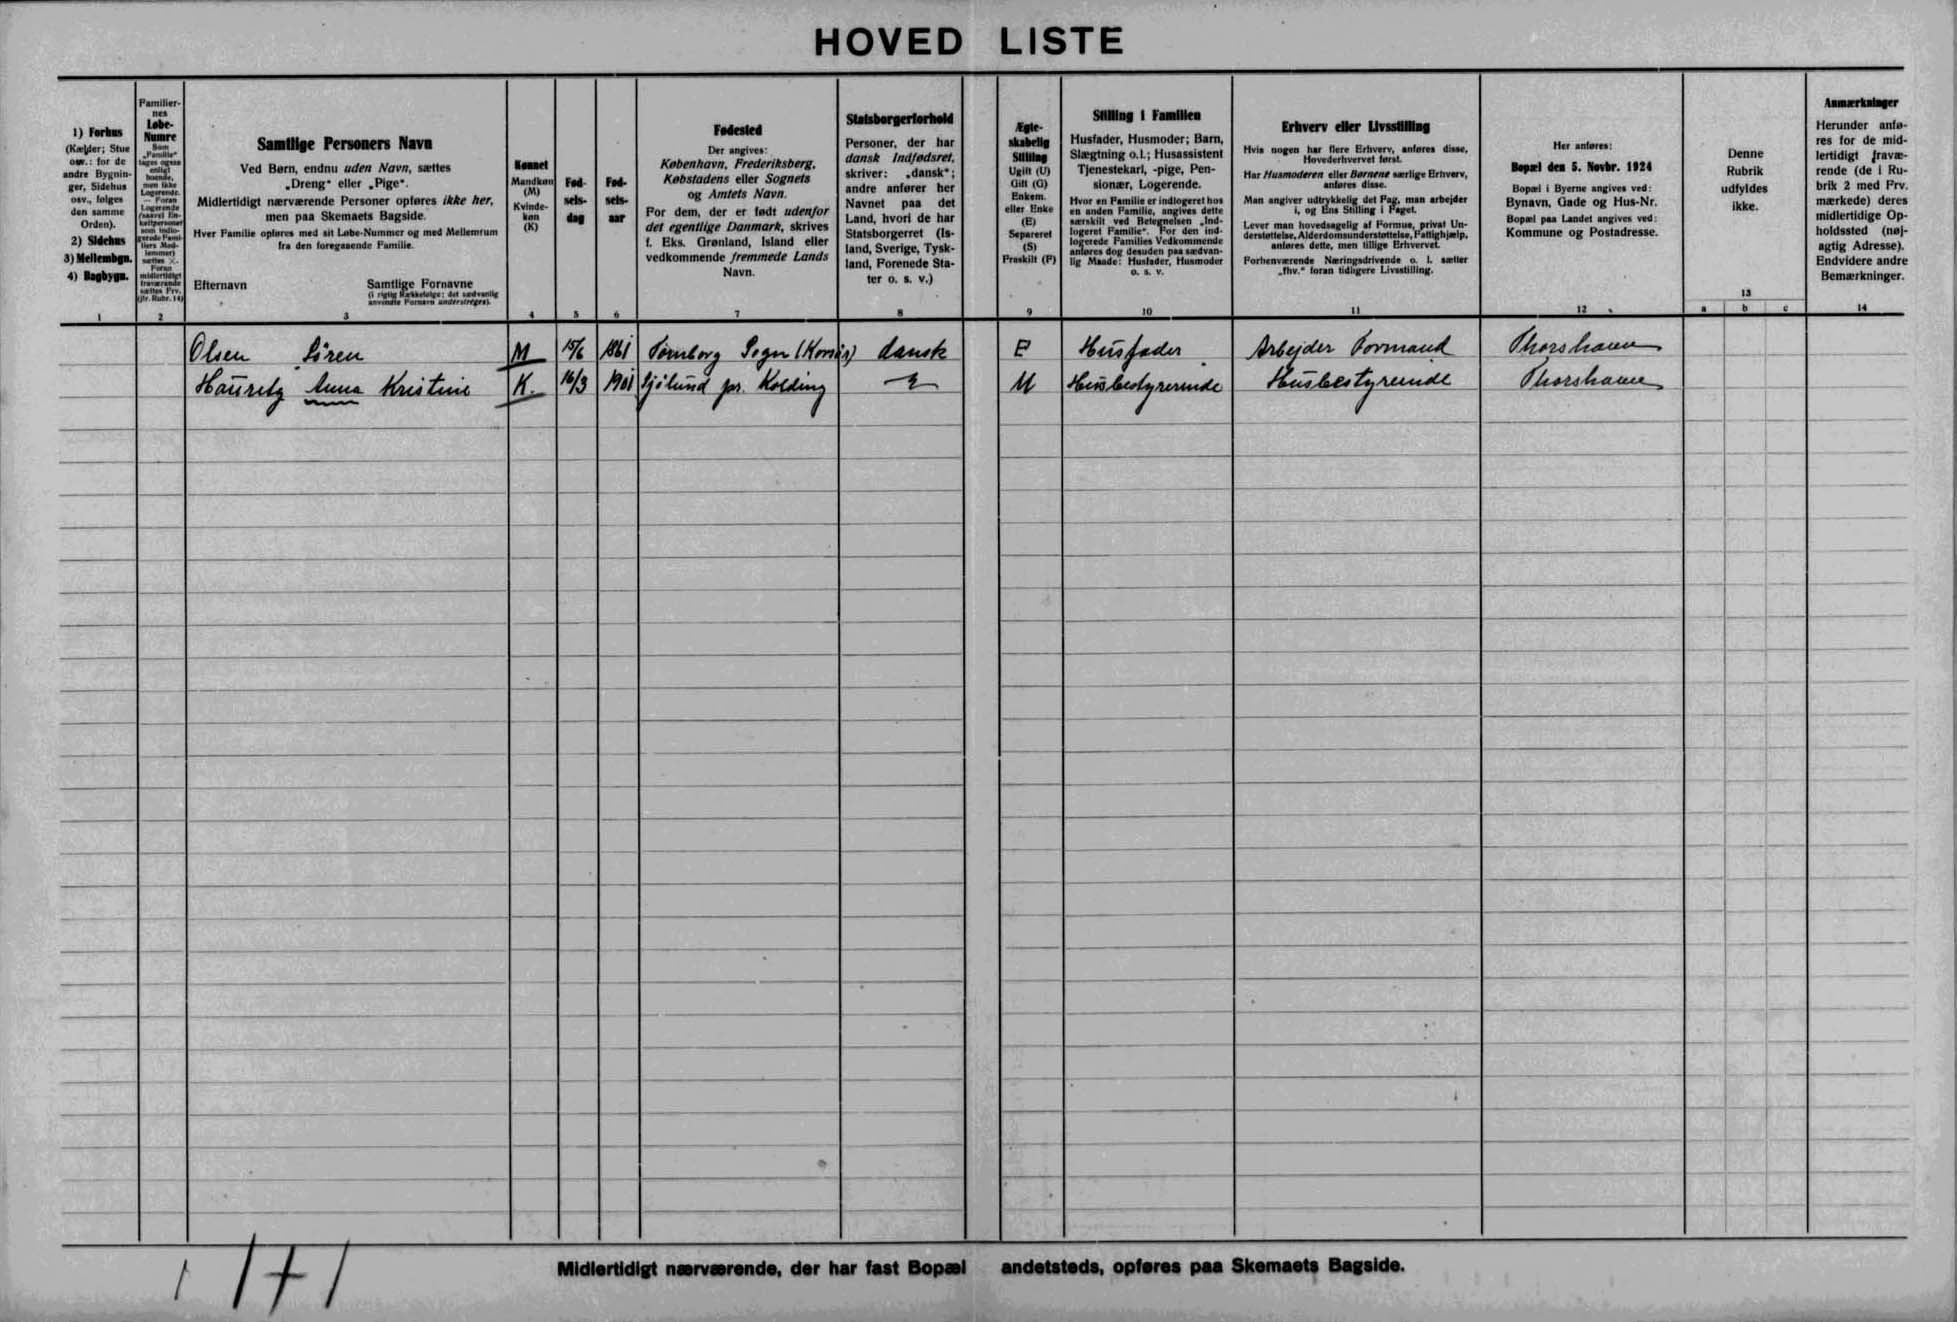 HOVED LISTE
1) Forhus
(Kælder; Stue
osv.: for de
andre Bygnin-
ger, Sidehus
osv., følges
den samme
Orden).
2) Sidehus
3) Mellembgn.
4) Bagbygn.
1
Familier-
nes
Løbe-
Numre
Som
„Familie"
tages ogsaa
enligt
boende,
men ikke
Logerende.
— Foran
Logerende
(saavel En-
keltpersoner
som indlo-
gerede Fami-
liers Med-
lemmer)
sættes ×.
Foran
midlertidigt
fraværende
sættes Frv.
(jfr. Rubr. 14)
2
Samtlige Personers Navn
Ved Børn, endnu uden Navn, sættes
„Dreng" eller „Pige".
Midlertidigt nærværende Personer opføres ikke her,
men paa Skemaets Bagside.
Hver Familie opføres med sit Løbe-Nummer og med Mellemrum
fra den foregaaende Familie.
Efternavn Samtlige Fornavne
(i rigtig Rækkefølge; det sædvanlig
anvendte Fornavn understreges).
3
Kønnet
Mandkøn
(M)
Kvinde-
køn
(K)
4
Fød-
sels-
dag
5
Fød-
sels-
aar
6
Fødested
Der angives:
København, Frederiksberg,
Købstadens eller Sognets
og Amtets Navn.
For dem, der er født udenfor
det egentlige Danmark, skrives
f. Eks. Grønland, Island eller
vedkommende fremmede Lands
Navn.
7
Statsborgerforhold
Personer, der har
dansk Indfødsret,
skriver: „dansk";
andre anfører her
Navnet paa det
Land, hvori de har
Statsborgerret (Is-
land, Sverige, Tysk-
land, Forenede Sta-
ter o. s. v.)
8
Ægte-
skabelig
Stilling
Ugift (U)
Gift (G)
Enkem.
eller Enke
(E)
Separeret
(S)
Fraskilt (F)
9
Stilling i Familien
Husfader, Husmoder; Barn,
Slægtning o.l.; Husassistent
Tjenestekarl, -pige, Pen-
sionær, Logerende.
Hvor en Familie er indlogeret hos
en anden Familie, angives dette
særskilt ved Betegnelsen „Ind-
logeret Familie". For den ind-
logerede Families Vedkommende
anføres dog desuden paa sædvan-
lig Maade: Husfader, Husmoder
o. s. v.
10
Erhverv eller Livsstilling
Hvis nogen har flere Erhverv, anføres disse,
Hovederhvervet først.
Har Husmoderen eller Børnene særlige Erhverv,
anføres disse.
Man angiver udtrykkelig det Fag, man arbejder
i, og Ens Stilling i Faget.
Lever man hovedsagelig af Formue, privat Un-
derstøttelse, Alderdomsunderstøttelse, Fattighjælp,
anføres dette, men tillige Erhvervet.
Forhenværende Næringsdrivende o. l. sætter
„fhv." foran tidligere Livsstilling.
11
Her anføres:
Bopæl den 5. Novbr. 1924
Bopæl i Byerne angives ved:
Bynavn, Gade og Hus-Nr.
Bopæl paa Landet angives ved:
Kommune og Postadresse.
12
Denne
Rubrik
udfyldes
ikke.
13
a b c
Anmærkninger
Herunder anfø-
res for de mid-
lertidigt fravæ-
rende (de i Ru-
brik 2 med Frv.
mærkede) deres
midlertidige Op-
holdssted (nøj-
agtig Adresse).
Endvidere andre
Bemærkninger.
14
Olsen Sören M 15/6 1861 Tornborg Sogn (Korsör) dansk E Husfader Arbejder Formand Thorshavn
Anna Kristine K. 16/3 1901 Sjölund pr. Kolding U Husbestyrerinde Husbestyrerinde Thorshavn
Midlertidigt nærværende, der har fast Bopæl andetsteds, opføres paa Skemaets Bagside.
1 1+1